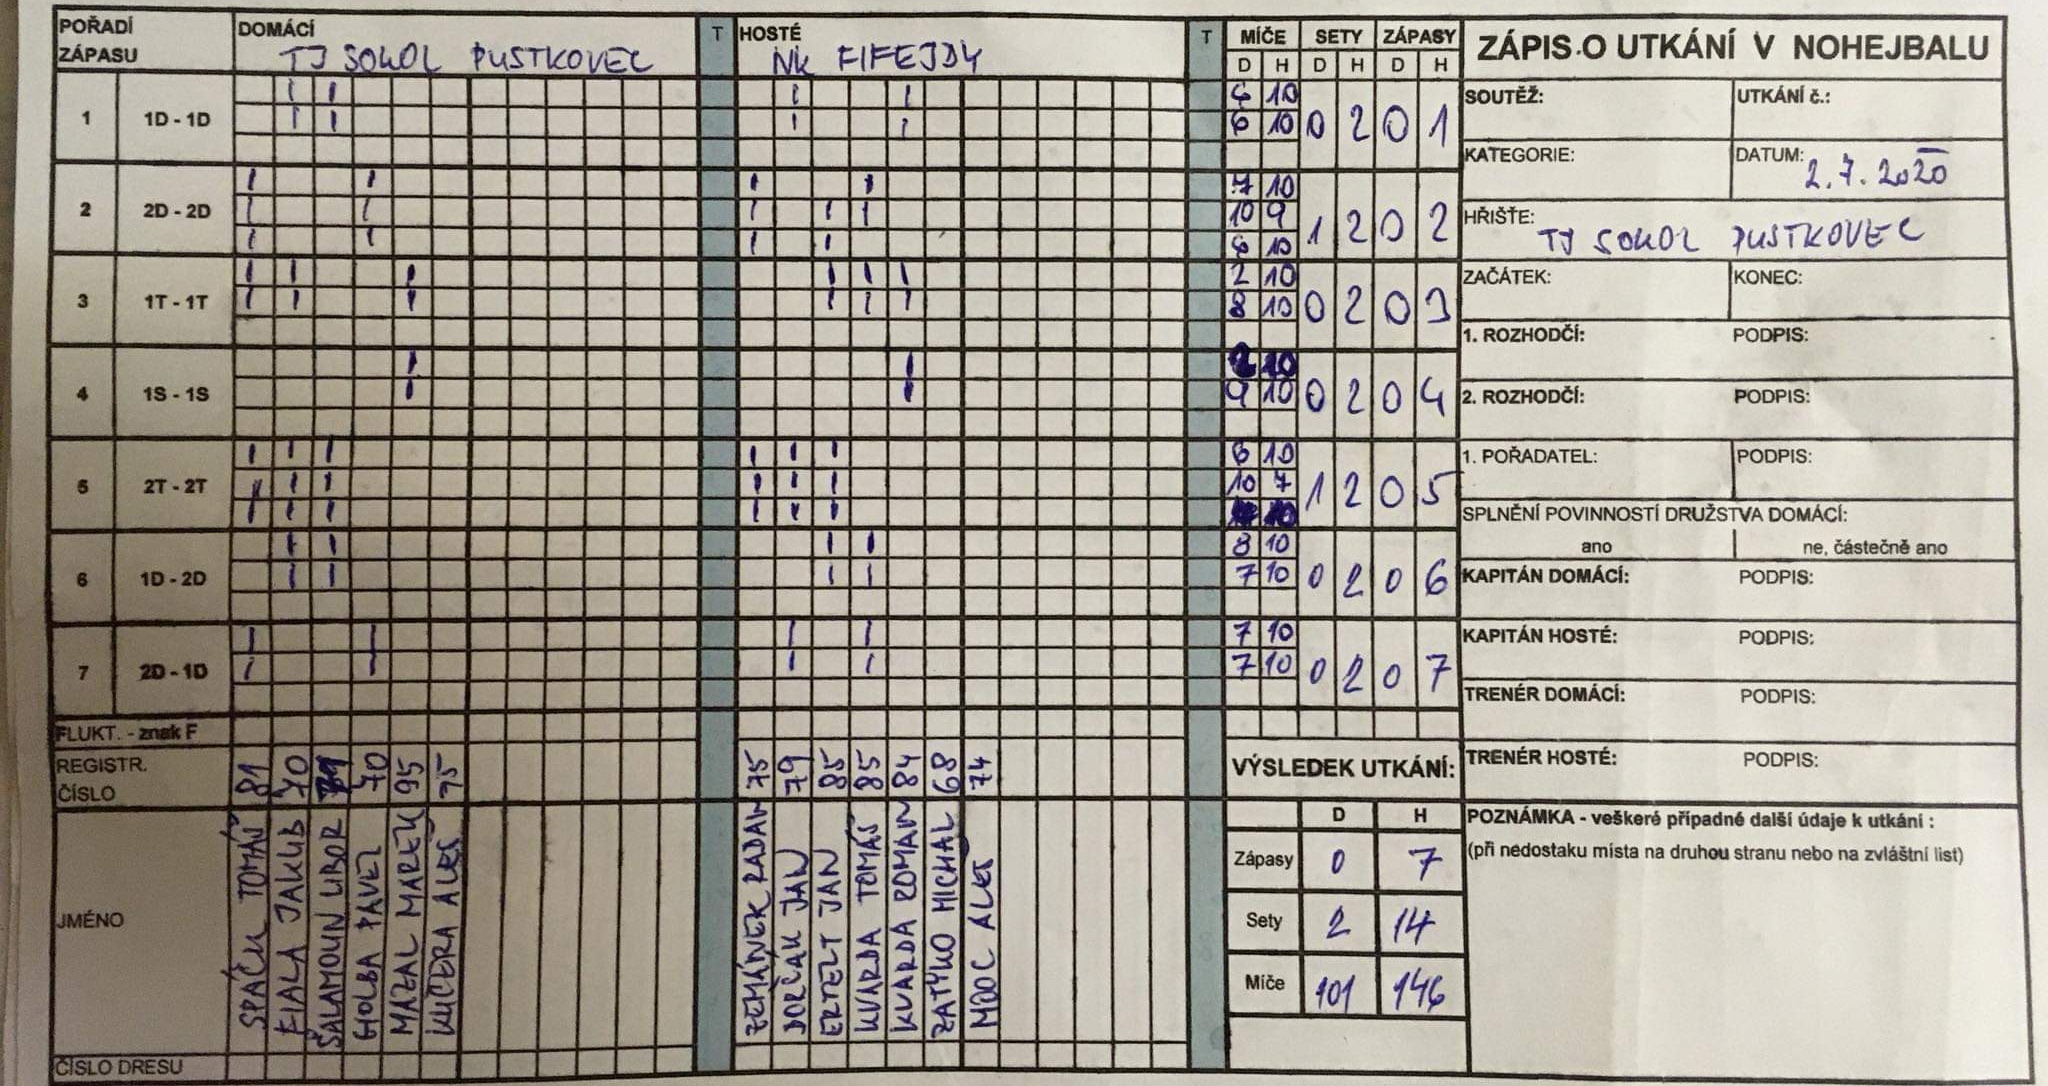 POŘADÍ ZÁPASU DOMÁCÍ T HOSTÉ T MÍČE SETY ZÁPASY ZÁPIS O UTKÁNÍ V NOHEJBALU
TJ SOKOL PUSTKOVEC NK FIFEJDY D H D H D H
1 1D - 1D 6 10 0 2 0 1
6 10
SOUTĚŽ: UTKÁNÍ č.:
KATEGORIE: DATUM: 2.7.2020
2 2D - 2D 7 10 1 2 0 2
10 9
6 10
HŘIŠTE: TJ SOKOL PUSTKOVEC
3 1T - 1T 2 10 0 2 0 3
8 10
ZAČÁTEK: KONEC:
1. ROZHODČÍ: PODPIS:
4 1S - 1S 10 0 2 0 4
9 10
2. ROZHODČÍ: PODPIS:
5 2T - 2T 6 10 1 2 0 5
10 7
10
1. POŘADATEL: PODPIS:
SPLNĚNÍ POVINNOSTÍ DRUŽSTVA DOMÁCÍ:
ano ne, částečně ano
6 1D - 2D 8 10 0 2 0 6
7 10
KAPITÁN DOMÁCÍ: PODPIS:
7 2D - 1D 7 10 0 2 0 7
7 10
KAPITÁN HOSTÉ: PODPIS:
TRENÉR DOMÁCÍ: PODPIS:
FLUKT. - znak F
TRENÉR HOSTÉ: PODPIS:
REGISTR. ČÍSLO 81 70 70 95 75 75 79 85 85 84 68 74
VÝSLEDEK UTKÁNÍ:
JMÉNO
SPÁČIL TOMÁŠ
FIALA JAKUB
ŠALAMOUN LIBOR
HOLBA PAVEL
MAZAL MAREK
KUČERA ALEŠ
ZEMÁNEK RADAN
DORČÁK JAN
ERTELT JAN
KVARDA TOMÁŠ
KVARDA ROMAN
ZATYKO MICHAL
MOC ALEŠ
D H
Zápasy 0 7
Sety 2 14
Míče 101 146
POZNÁMKA - veškeré případné další údaje k utkání :
(při nedostaku místa na druhou stranu nebo na zvláštní list)
ČÍSLO DRESU